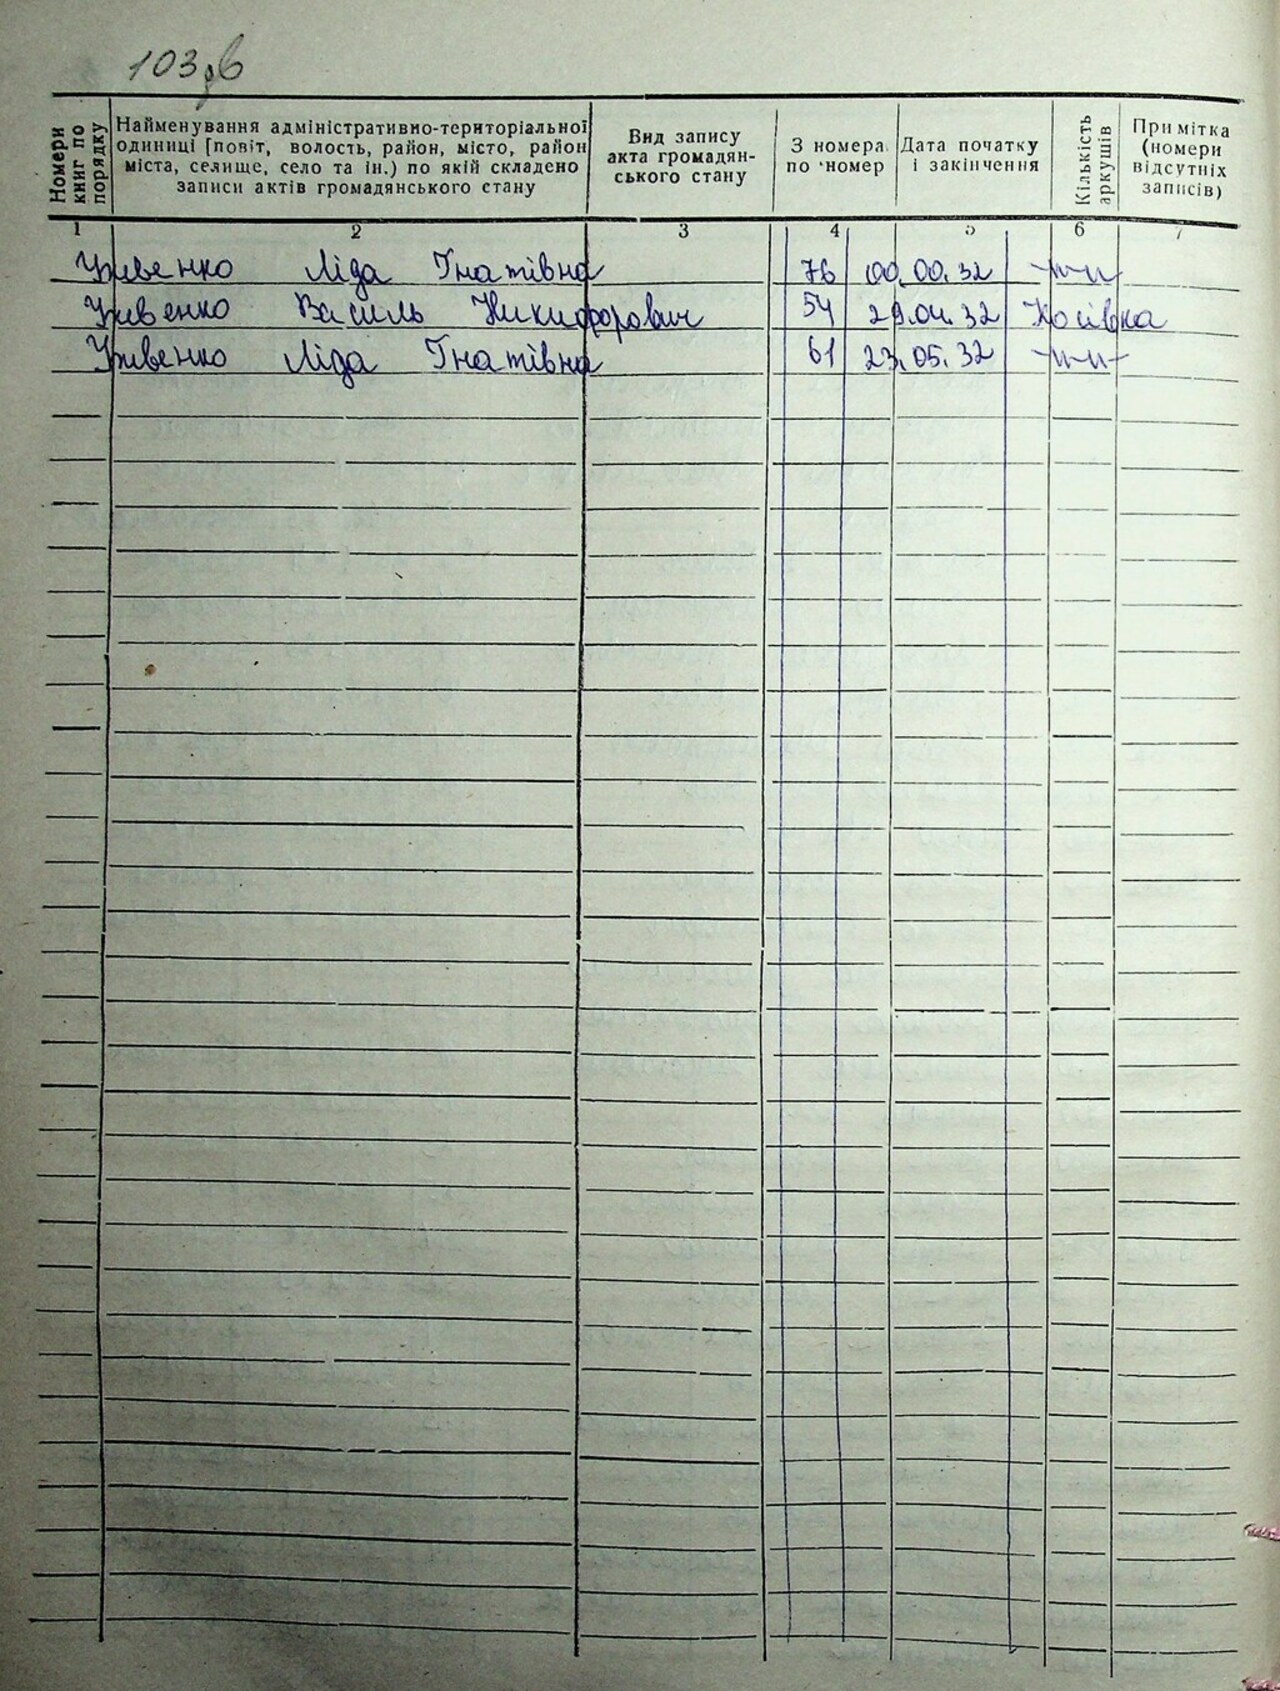 103зв
Номери книг по порядку
Найменування адміністративно-територіальної одиниці [повіт, волость, район, місто, район міста, селище, село та ін.) по якій складено записи актів громадянського стану
Вид запису акта громадян-ського стану
З номера по номер
Дата початку і закінчення
Кількість аркушів
Примітка (номери відсутніх записів)
1 2 3 4 5 6 7
Ущвенко Ліда Гнатівна 76 00.00.32 -"-"-
Василь Никифорович 54 29.04.32 Косівка
Ліда Гнатівна 61 23.05.32 -"-"-